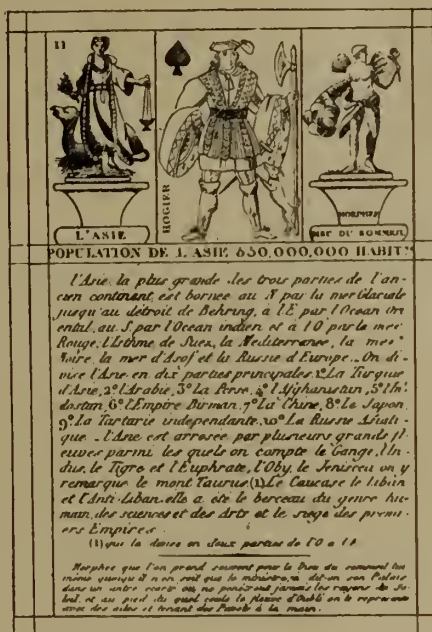 11
HOGIER
L'ASIE
MORPHÉE
DIEU DU SOMMEIL
POPULATION DE L'ASIE 650,000,000 HABIT.ˢ
l'Asie, la plus grande des trois parties de l'an-
cien continent, est bornée au N par la mer Glaciale
jusqu'au détroit de Behring, à l'E par l'Ocean Ori
ental, au S. par l'Ocean indien et à l'O par la mer
Rouge, l'Isthme de Suez, la Mediterranée, la mer
Noire, la mer d'Asof et la Russie d'Europe. On di-
vise l'Asie en dix parties principales. 1º La Turquie
d'Asie, 2º l'Arabie, 3º La Perse, 4º l'Afghanistan, 5º l'In-
dostan, 6º l'Empire Birman, 7º La Chine, 8º Le Japon,
9º La Tartarie independante, 10º La Russie Asiati-
que. l'Asie est arrosée par plusieurs grands fl-
euves parmi les quels on compte le Gange, l'In-
dus, le Tigre et l'Euphrate, l'Oby, le Jenisceu on y
remarque le mont Taurus (1) Le Caucase le liban
et l'Anti-Liban elle a été le berceau du genre hu-
main, des sciences et des Arts et le siege des premi-
ers Empires.
(1) qui la divise en deux parties de l'O à l'E.
Morphée que l'on prend souvent pour le Dieu du sommeil lui
même quoiqu'il n'en soit que le ministre, a dit-on son Palais
dans un antre écarté où ne penètrent jamais les rayons du So-
leil et au pied du quel coule le fleuve d'Oubli on le represente
avec des ailes et tenant des Pavots à la main.